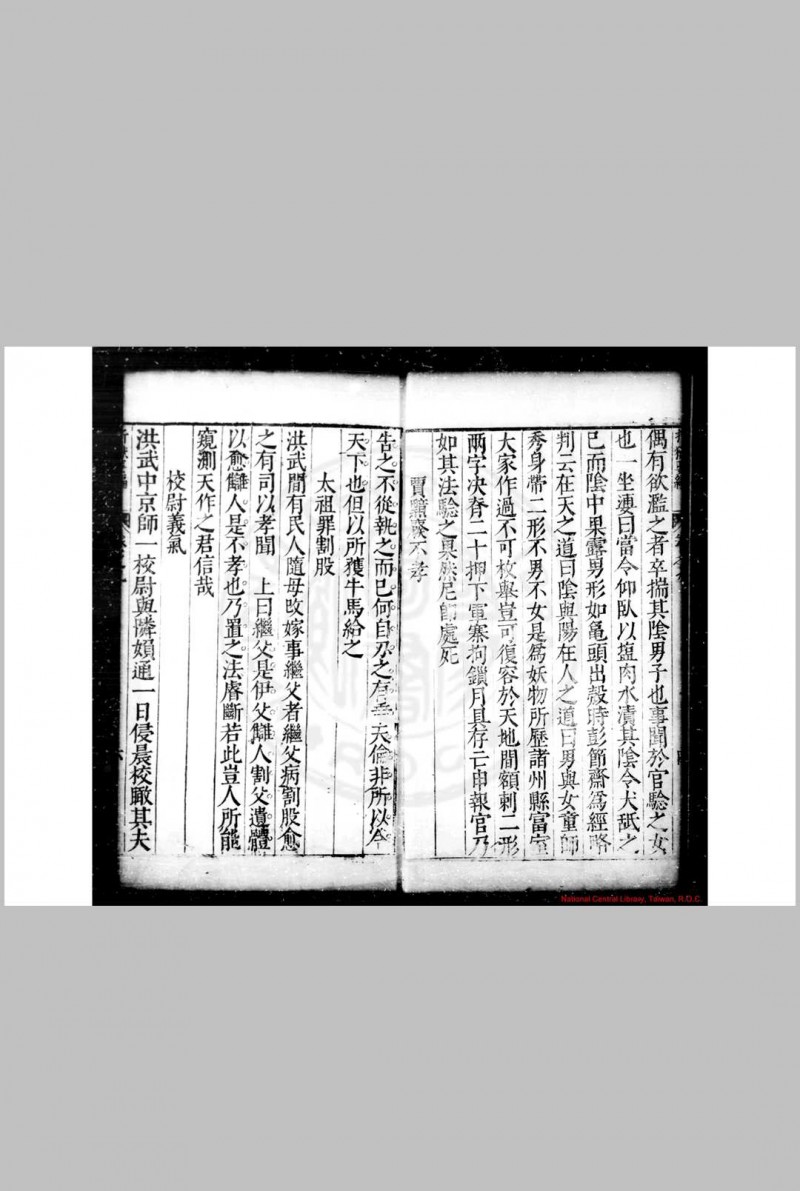 偶有欲濫之者卒揣其陰男子也事聞於官驗之女
也一坐婆曰當令仰臥以塩肉水漬其陰令犬舐之
已而陰中果露男形如龜頭出殼時彭節齋為經略
判云在天之道曰陰與陽在人之道曰男與女童師
秀身帶二形不男不女是為妖物所歷諸州縣富室
大家作過不可枚舉豈可復容於天地間額刺二形
兩字决脊二十押下軍寨拘鎖月具存亡申報官乃
如其法驗之果然尼師處死
賈 不孝
告之不從執之而已何自刃之有 夫倫非所以令
天下也但以所獲牛馬給之
太祖罪割股
洪武間有民人隨母改嫁事繼父者繼父病割股愈
之有司以孝聞 上曰繼父是伊父讎人割父遺體
以愈讎人是不孝也乃置之法睿斷若此豈人所能
窺測天作之君信哉
校尉義氣
洪武中京師一校尉與隣婦通一日侵晨校瞰其夫
National Central Library, Taiwan, R.O.C.